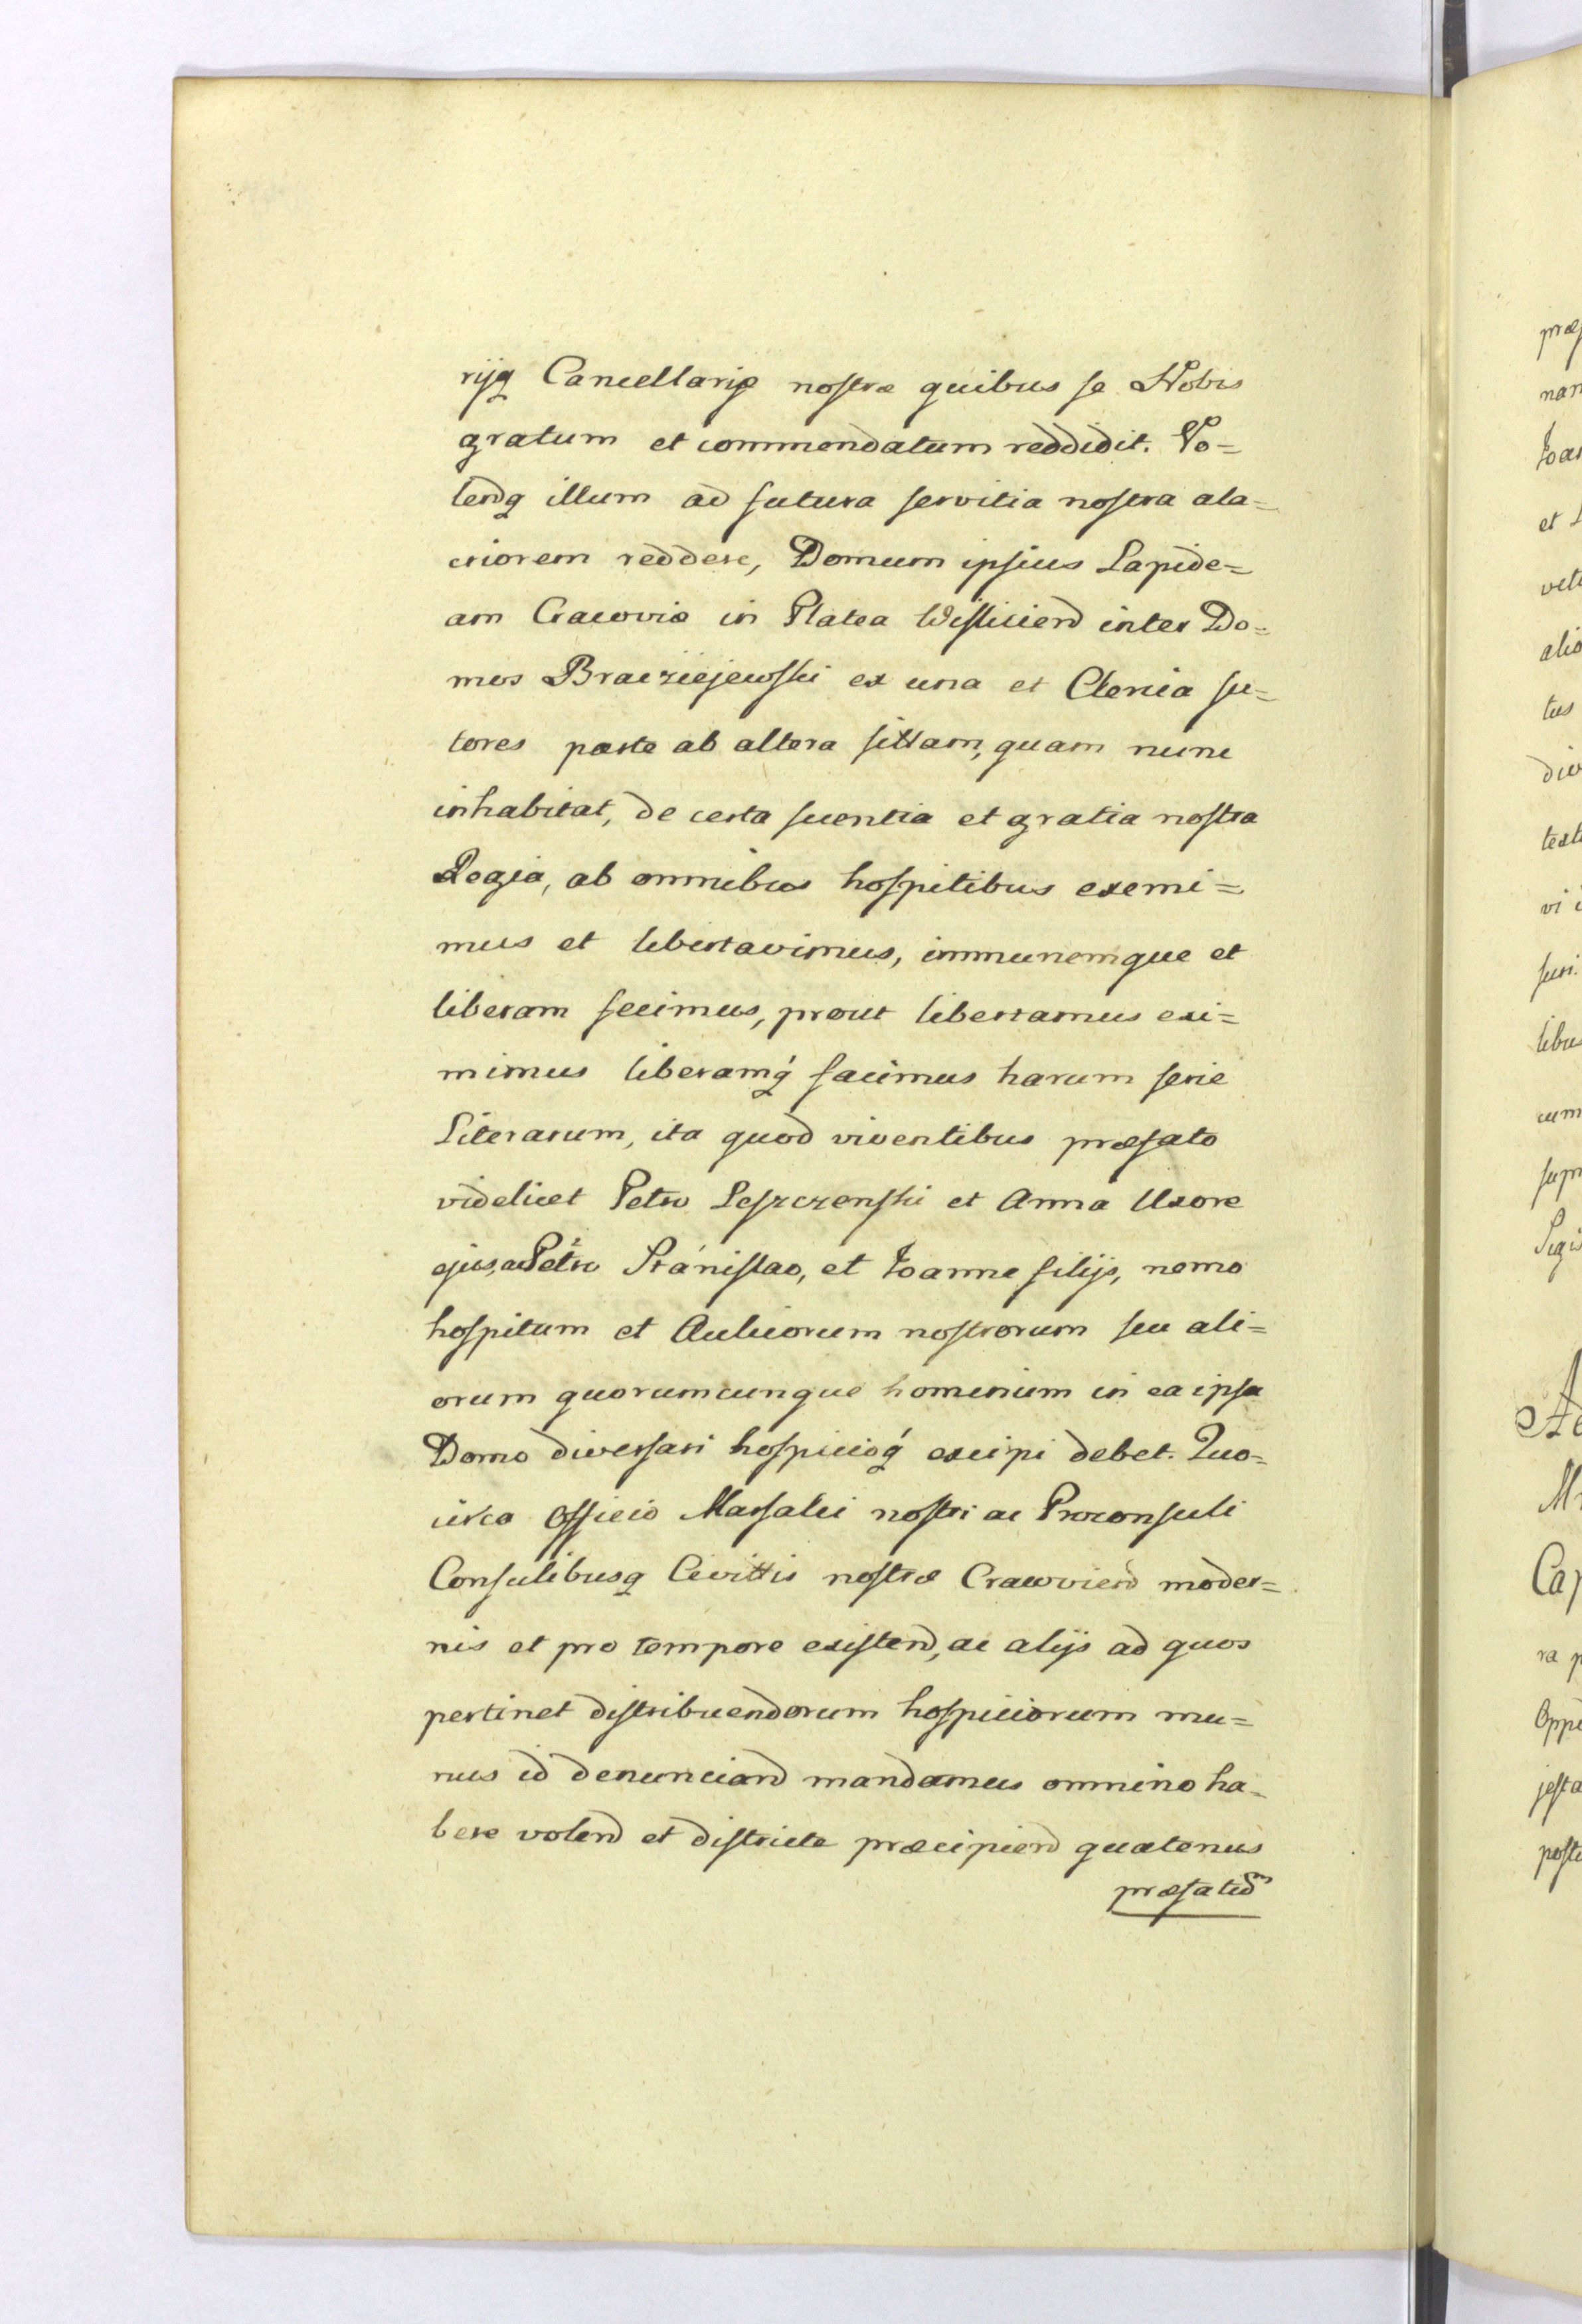 rijq Cancellariæ nostræ quibus se Nobis
gratum et commendatum reddidit. Vo=
lendq illum ad futura servitia nostra ala=
criorem reddere, Domum ipsius Lapide=
am Cracoviæ in Platea Wisliciend inter Do=
mos Braciziejewski ex una et Clenia su=
tores parte ab altera sittam, quam nunc
inhabitat, de certa scientia et gratia nostra
Regia, ab omnibus hospitibus exemi=
mus et libertavimus, immunemque et
liberam fecimus, prout libertamus exi=
mimus liberamq́ facimus harum serie
Literarum, ita quod viventibus præfato
videlicet Petro Leszczenski et Anna Uxore
ejus, ac Petro Stánislao, et Joanne filijs, nemo
hospitum et Aulicorum nostrorum seu ali=
orum quorumcunque hominum in ea ipsa
Domo diversari hospicioq́ excipi debet. Quo=
circa Officio Marsalci nostri ac Proconsuli
Consulibusq Civittis nostræ Cracoviend moder=
nis et pro tempore existend, ac alijs ad quos
pertinet distribuendorum hospiciorum mu=
nus id denunciand mandamus omnino ha=
bere volend et districte præcipiend quatenus
præfatid
præ
nan
Joan
et
alio
tus
vi
libus
cum
Ca
Oppi
jesta